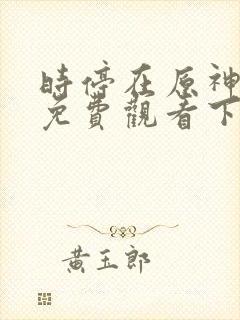 時停在原神
免費觀看下
黃玉郎